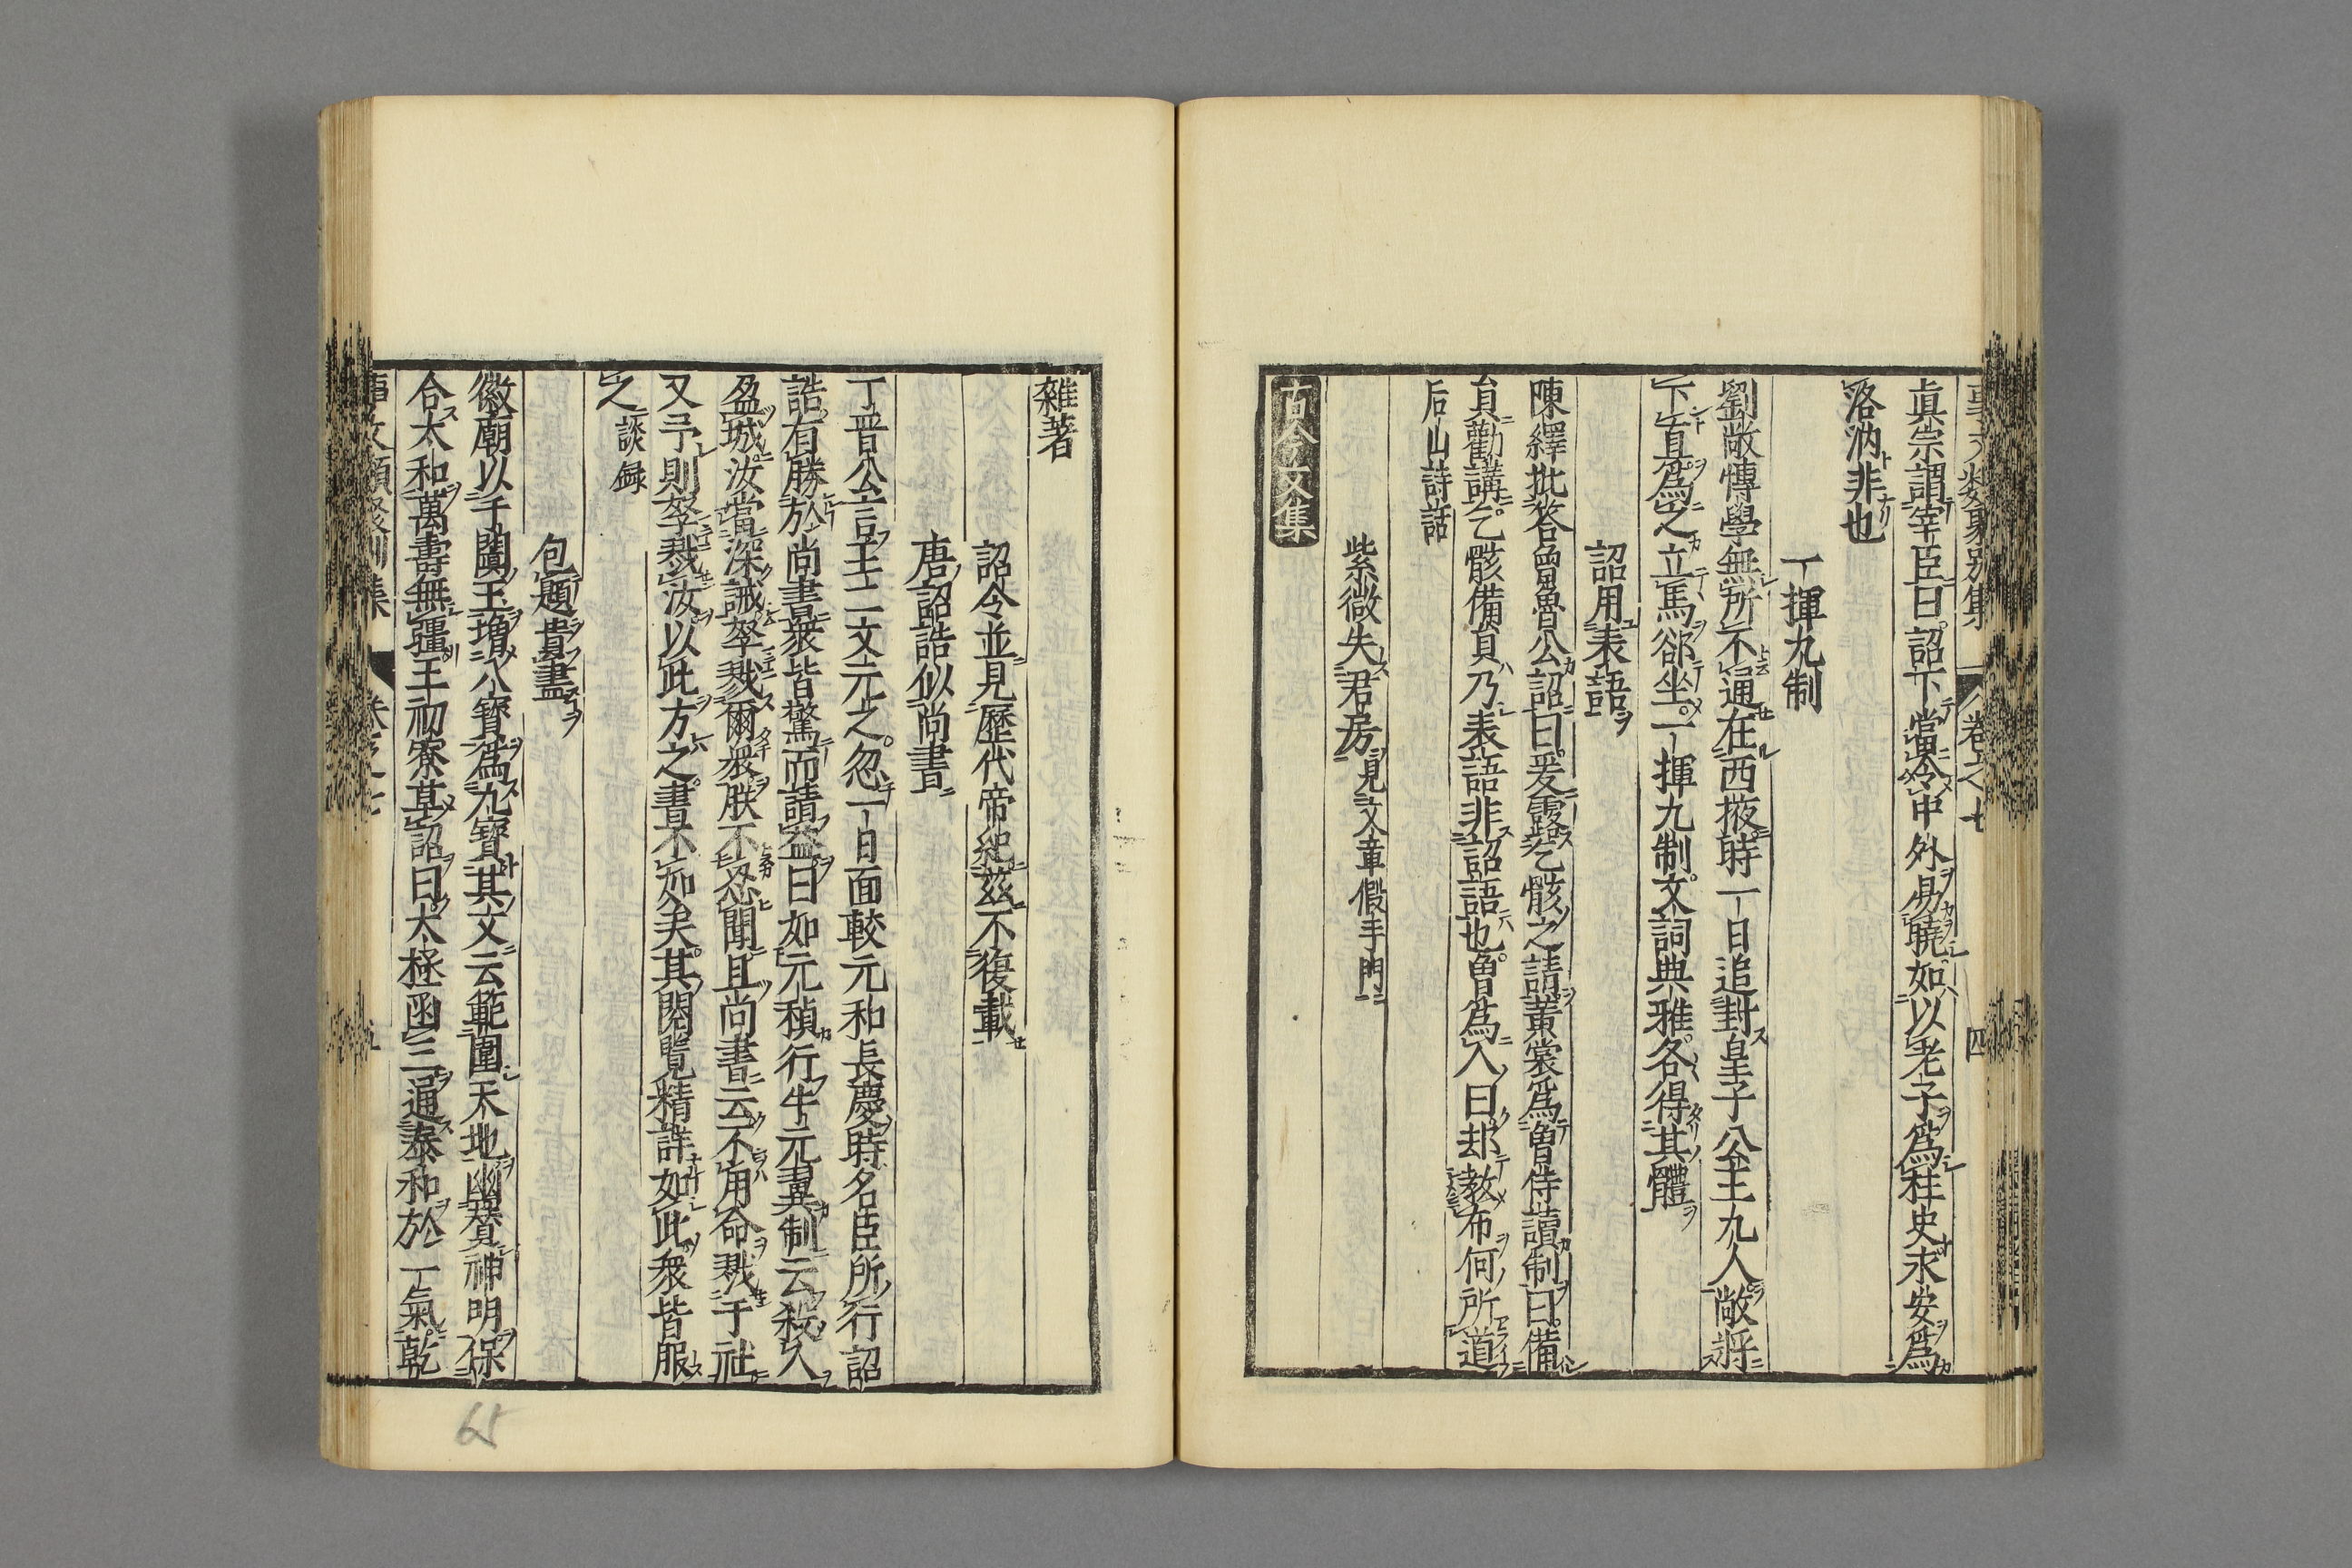 事文類聚別集 卷之七 四
眞宗謂宰臣曰詔下當令中外易曉如以老子爲柱史求安爲
洛汭非也
一揮九制
劉敞慱學無所不通在西掖時一日追對皇子公主九人敞將
下直爲之立馬郤坐一揮九制文詞典雅各得其體
詔用表語
陳繹批答曾魯公詔曰爰露乞骸之請黄裳爲曾侍讀制曰備
員勸講乞骸備員乃表語非詔語也曾爲人曰却教布何所道
后山詩話
紫微失君房見文章假手門
古今文集
雜著
詔令並見歷代帝紀茲不復載
唐詔誥似尚書
丁晋公言王二文元之忽一日面較元和長慶時名臣所行詔
誥有勝於尚書衆皆驚而請益曰如元稹行牛元翼制云殺人
盈城汝當深誡孥戮爾衆朕不忍聞且尚書云不用命戮于社
又予則孥戮汝以此方之書不如矣其閱覧精詳如此衆皆服
之 談録
包題貴盡
徽廟以于闐玉增八寶爲九寶其文云範圍天地幽賛神明保
合太和萬壽無疆王初寮草詔曰太極函三通泰和於一氣乾
事文類聚別集 卷之七 五
65